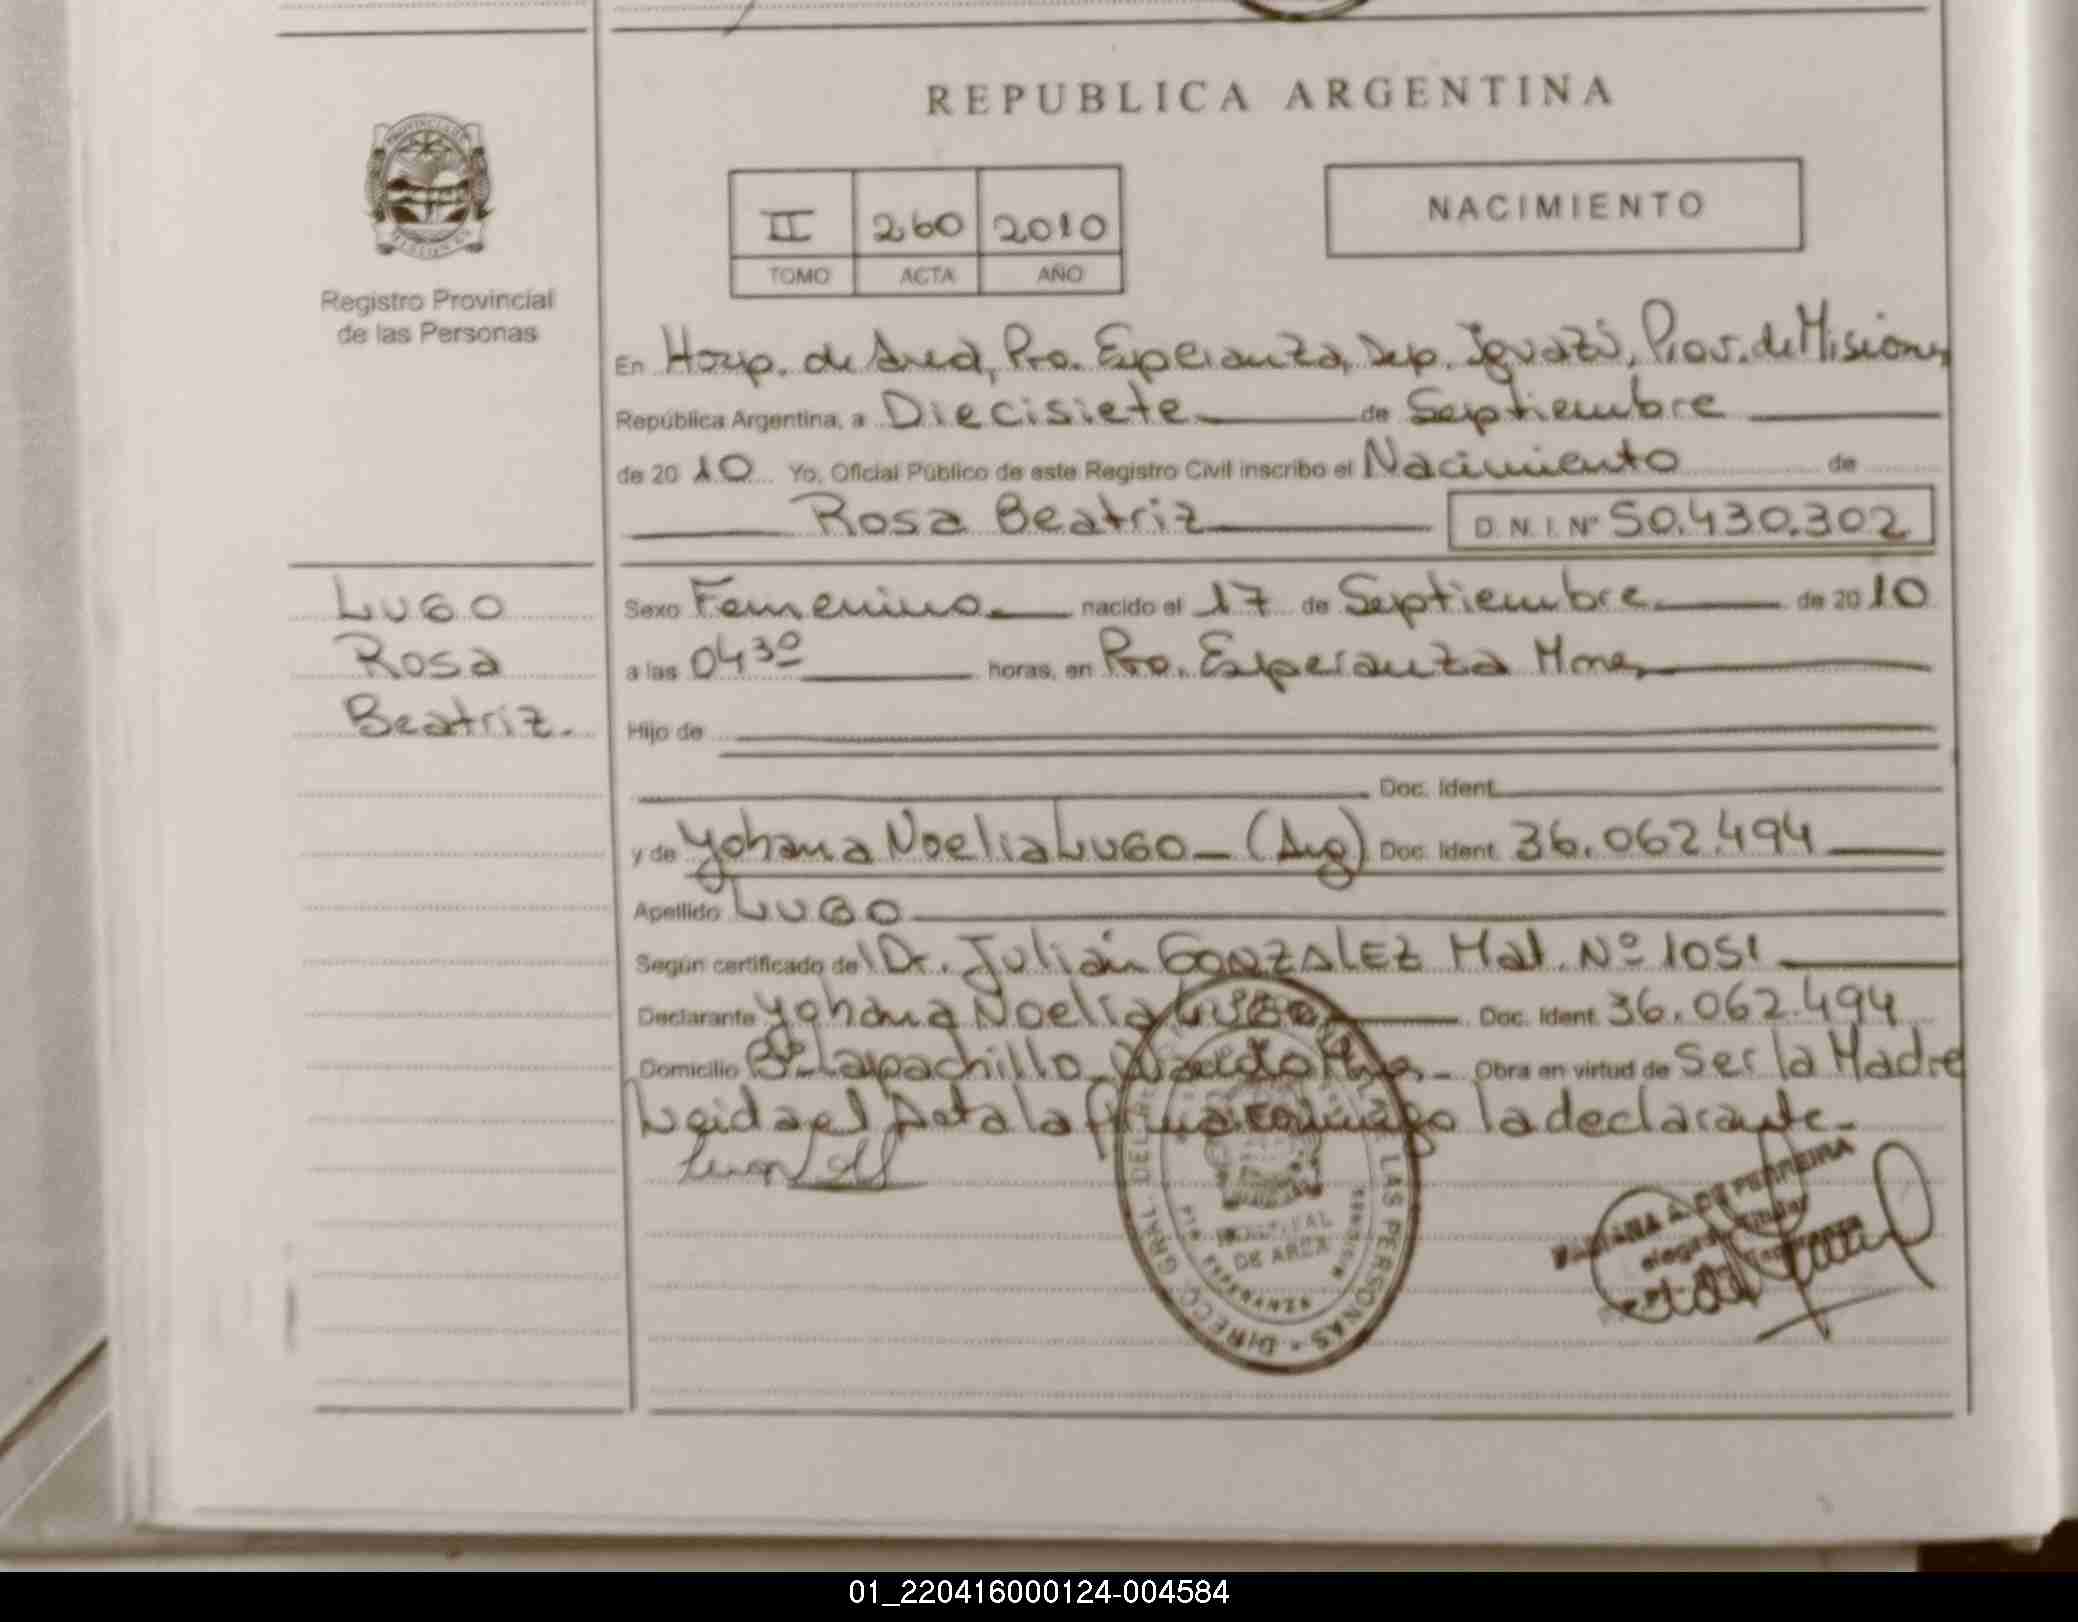 REPUBLICA ARGENTINA
PROVINCIA DE
MISIONES
Registro Provincial
de las Personas
II 260 2010
TOMO ACTA AÑO
NACIMIENTO
En Hosp. de Area, Pto. Esperanza, Dep. Iguazú, Prov. de Misiones,
República Argentina, a Diecisiete de Septiembre
de 2010 Yo, Oficial Público de este Registro Civil inscribo el Nacimiento de
Rosa Beatriz D.N.I. Nº 50.430.302
LUGO
Rosa
Beatriz.
Sexo Femenino nacido el 17 de Septiembre de 2010
a las 04 30 horas, en Pto. Esperanza Mnes,
Hijo de
Doc. Ident.
y de Yohana Noelia LUGO - (Arg) Doc. Ident. 36.062.494
Apellido LUGO
Según certificado del Dr. Julián GONZALEZ Mat. Nº 1051
Declarante Yohana Noelia LUGO Doc. Ident. 36.062.494
Domicilio Bº Lapachillo - Mnes, - Obra en virtud de Ser la Madre
Leida el Acta la firma conmigo la declarante.-
DIRECC. GRAL. DEL LAS PERSONAS
HOSPITAL
DE AREA
DE FERREIRA
01_220416000124-004584